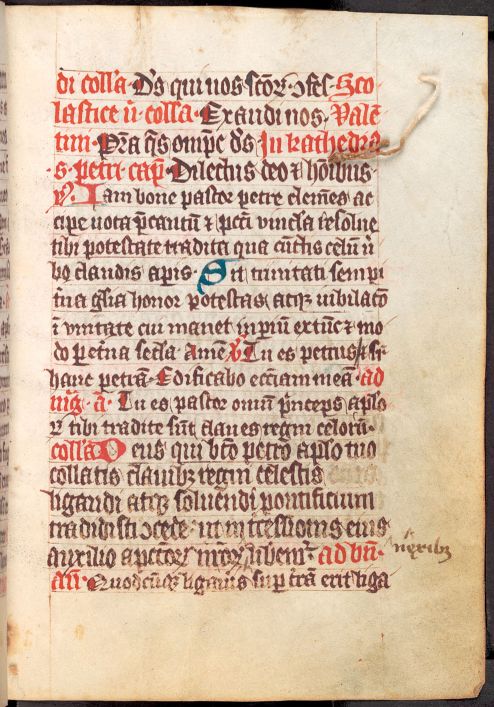 di coll'a D's qui nos sco℞ ↄfes Sco
lastice v̄ coll'a Exaudi nos Valē
tini Pr̄a q̄s omp̄c ds In kathedra
s petri cap Dilectus deo ⁊ hōībus
Iam bone pastor petre clemēs ac
cipe uota p̄cantū ⁊ pctī vincla resolue
tibi potestate tradita qua cūctis celū v̄
bo claudis aperis Sit trinitati sempi
tna gl̄ia honor potestas atqꝫ iubilacō
ī vnitate cui manet inpiū extūc ⁊ mo
do p et̄na secl̄a Amē V Tu es petrus ⁊ sr̄
hanc petrā Edificabo eccl̄iam meā ad
mḡ a Tu es pastor oniū p̄nceps aplo
℞ tibi tradite sūt claues regni celoru
coll'a Deus qui bt̄o petro aplo tuo
collatis clauibꝫ regni celestis
ligandi atqꝫ soluendi pontificium
tradidisti ↄcede ut intercessionis eius
auxilio a pctō℞ nr̄o℞ liberem᷑ ad bn̄
nexibꝫ
añ Quodcūqꝫ ligaūis sup trā erit liga